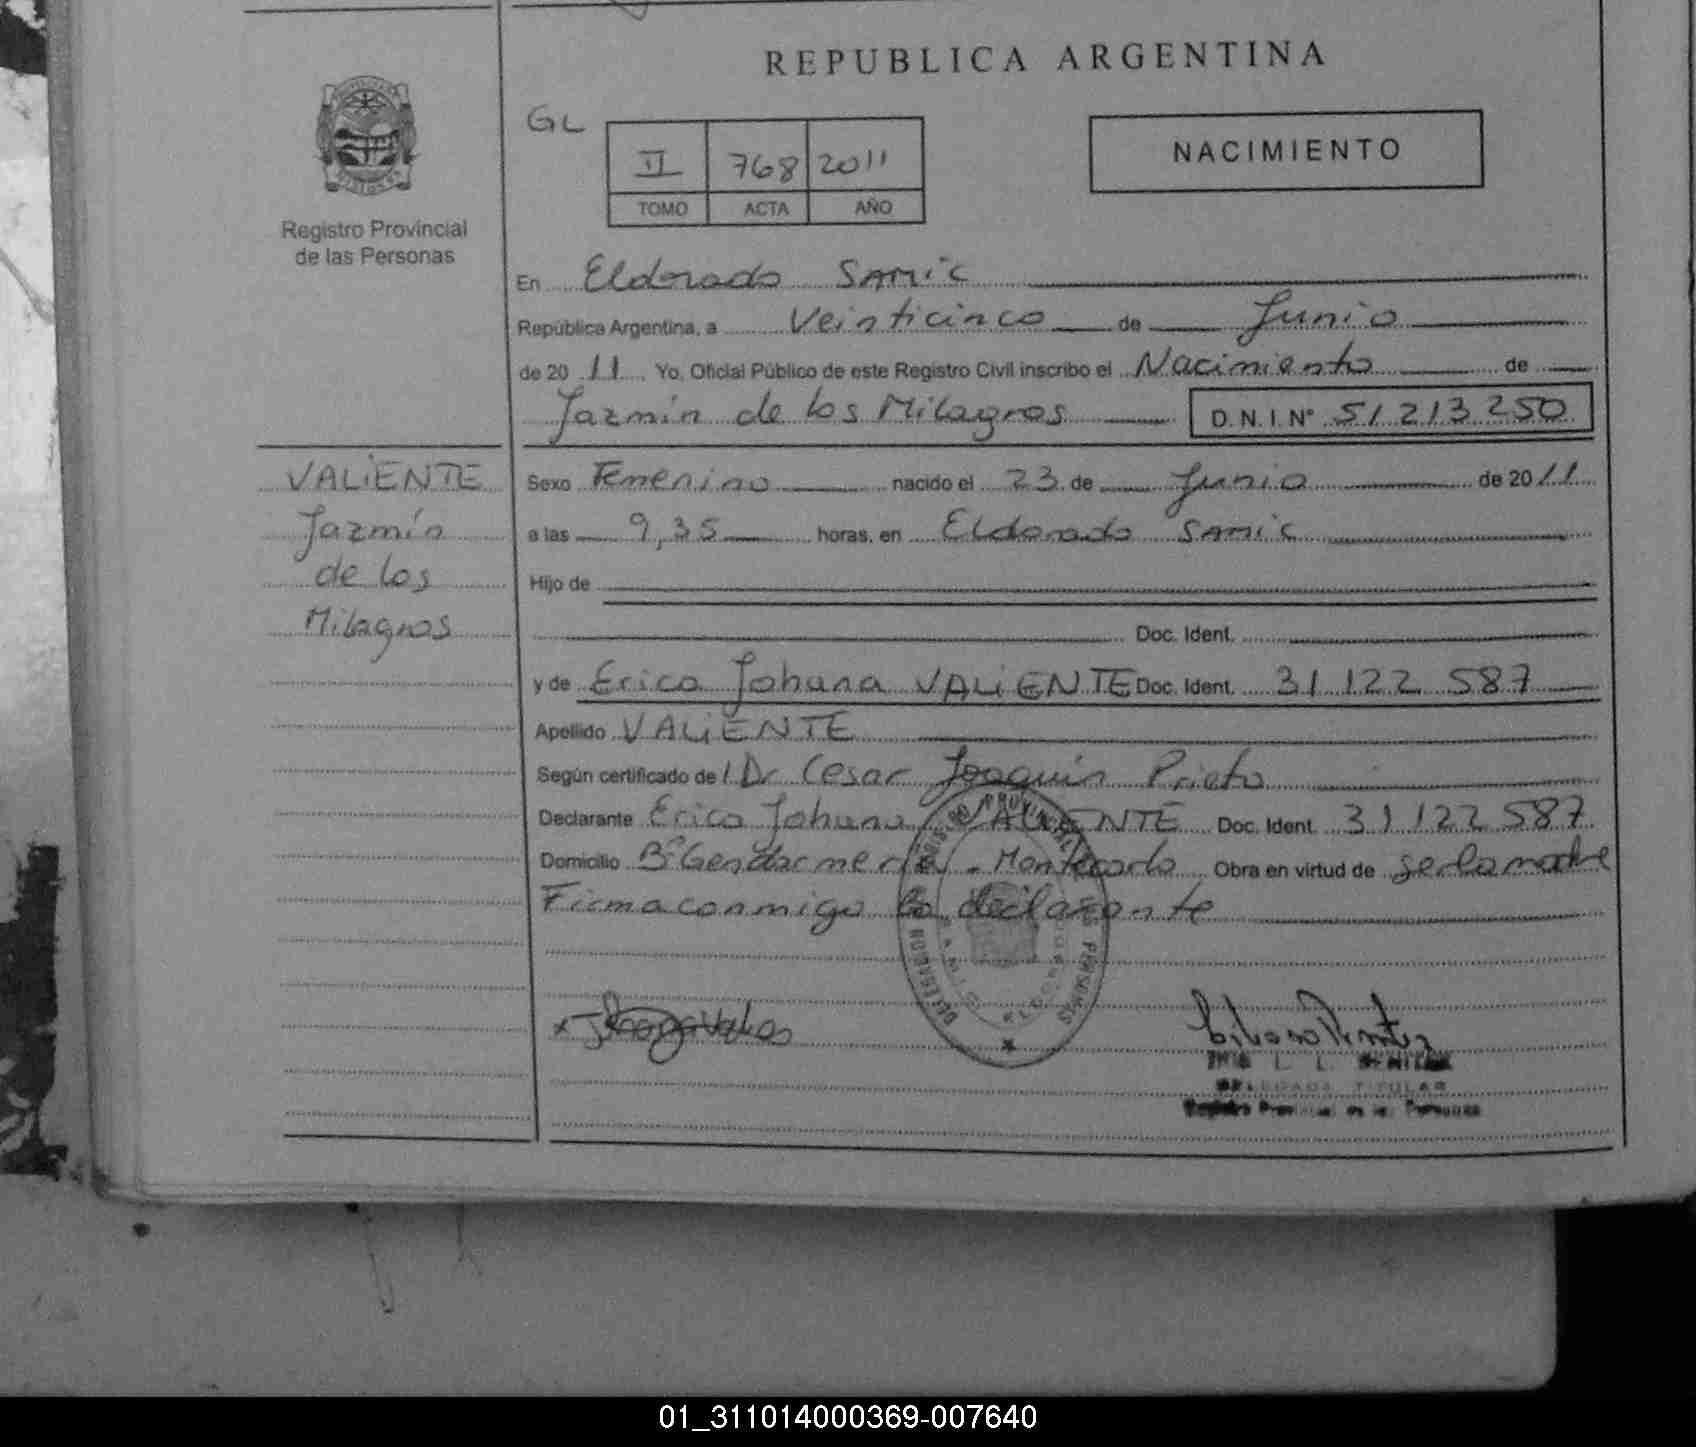 REPUBLICA ARGENTINA
GL
II 768 2011
TOMO ACTA AÑO
NACIMIENTO
Registro Provincial
de las Personas
En Eldorado SAMIC
República Argentina, a Veinticinco de Junio
de 20 11 Yo, Oficial Público de este Registro Civil inscribo el Nacimiento de
Jazmín de los Milagros D.N.I. N° 51 213 250
VALIENTE
Jazmín
de los
Milagros
Sexo Femenino nacido el 23 de Junio de 20 11
a las 9,35 horas, en Eldorado SAMIC
Hijo de
Doc. Ident.
y de Erica Johana VALIENTE Doc. Ident. 31 122 587
Apellido VALIENTE
Según certificado de l Dr Cesar Joaquin Prieto
Declarante Erica Johana VALIENTE Doc. Ident 31 122 587
Domicilio B° Gendarmeria - Montecarlo Obra en virtud de ser la madre
Firma conmigo la declarante
DELEGADA TITULAR
Registro Provincial de las Personas
01_311014000369-007640